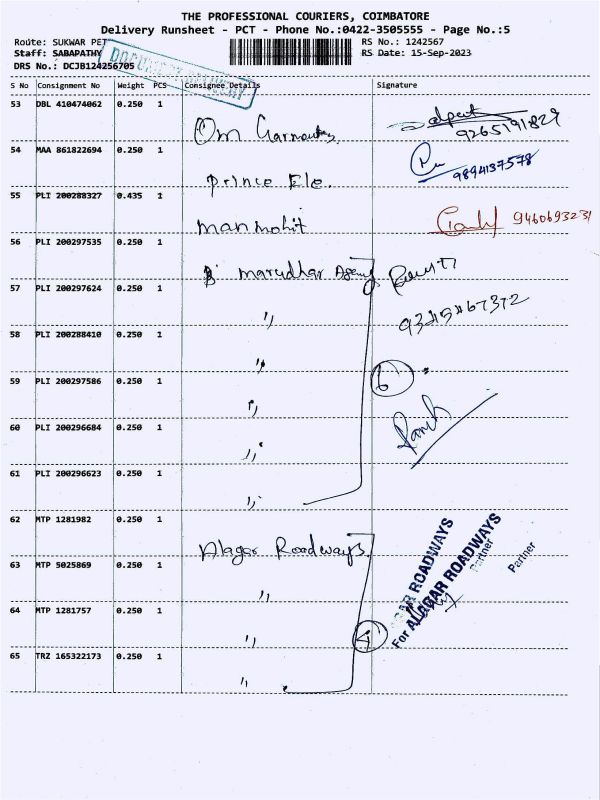 THE PROFESSIONAL COURIERS, COIMBATORE
Delivery Runsheet - PCT - Phone No.:0422-3505555 - Page No.:5
Route: SUKWAR PET
RS No.: 1242567
Staff: SABAPATHY
RS Date: 15-Sep-2023
DRS No.: DCJB124256705
DOCUMENT DELIVERY
S No Consignment No Weight PCS Consignee Details Signature
53 DBL 410474062 0.250 1
Om Garments
9265191829
54 MAA 861822694 0.250 1
Prince Ele.
9894137578
55 PLI 200288327 0.435 1
manmohit
9460693231
56 PLI 200297535 0.250 1
marudhar Agency
57 PLI 200297624 0.250 1
"
58 PLI 200288410 0.250 1
"
6
59 PLI 200297586 0.250 1
"
60 PLI 200296684 0.250 1
"
61 PLI 200296623 0.250 1
"
62 MTP 1281982 0.250 1
Alagar Roadways
63 MTP 5025869 0.250 1
"
64 MTP 1281757 0.250 1
"
4
65 TRZ 165322173 0.250 1
"
GAR ROADWAYS
Partner
For ALAGAR ROADWAYS
Partner